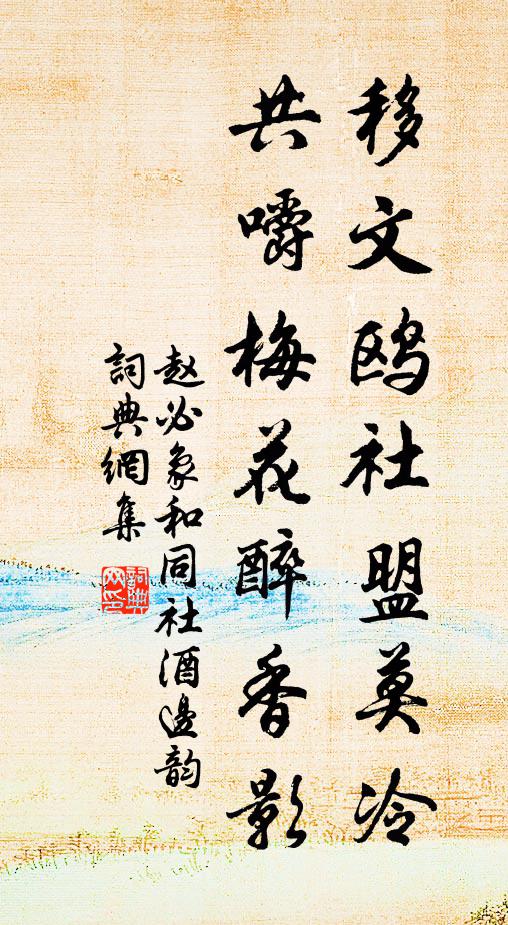 移文鸥社盟莫冷
共嚼梅花醉香影
赵必象和同社酒边韵
詞典網集